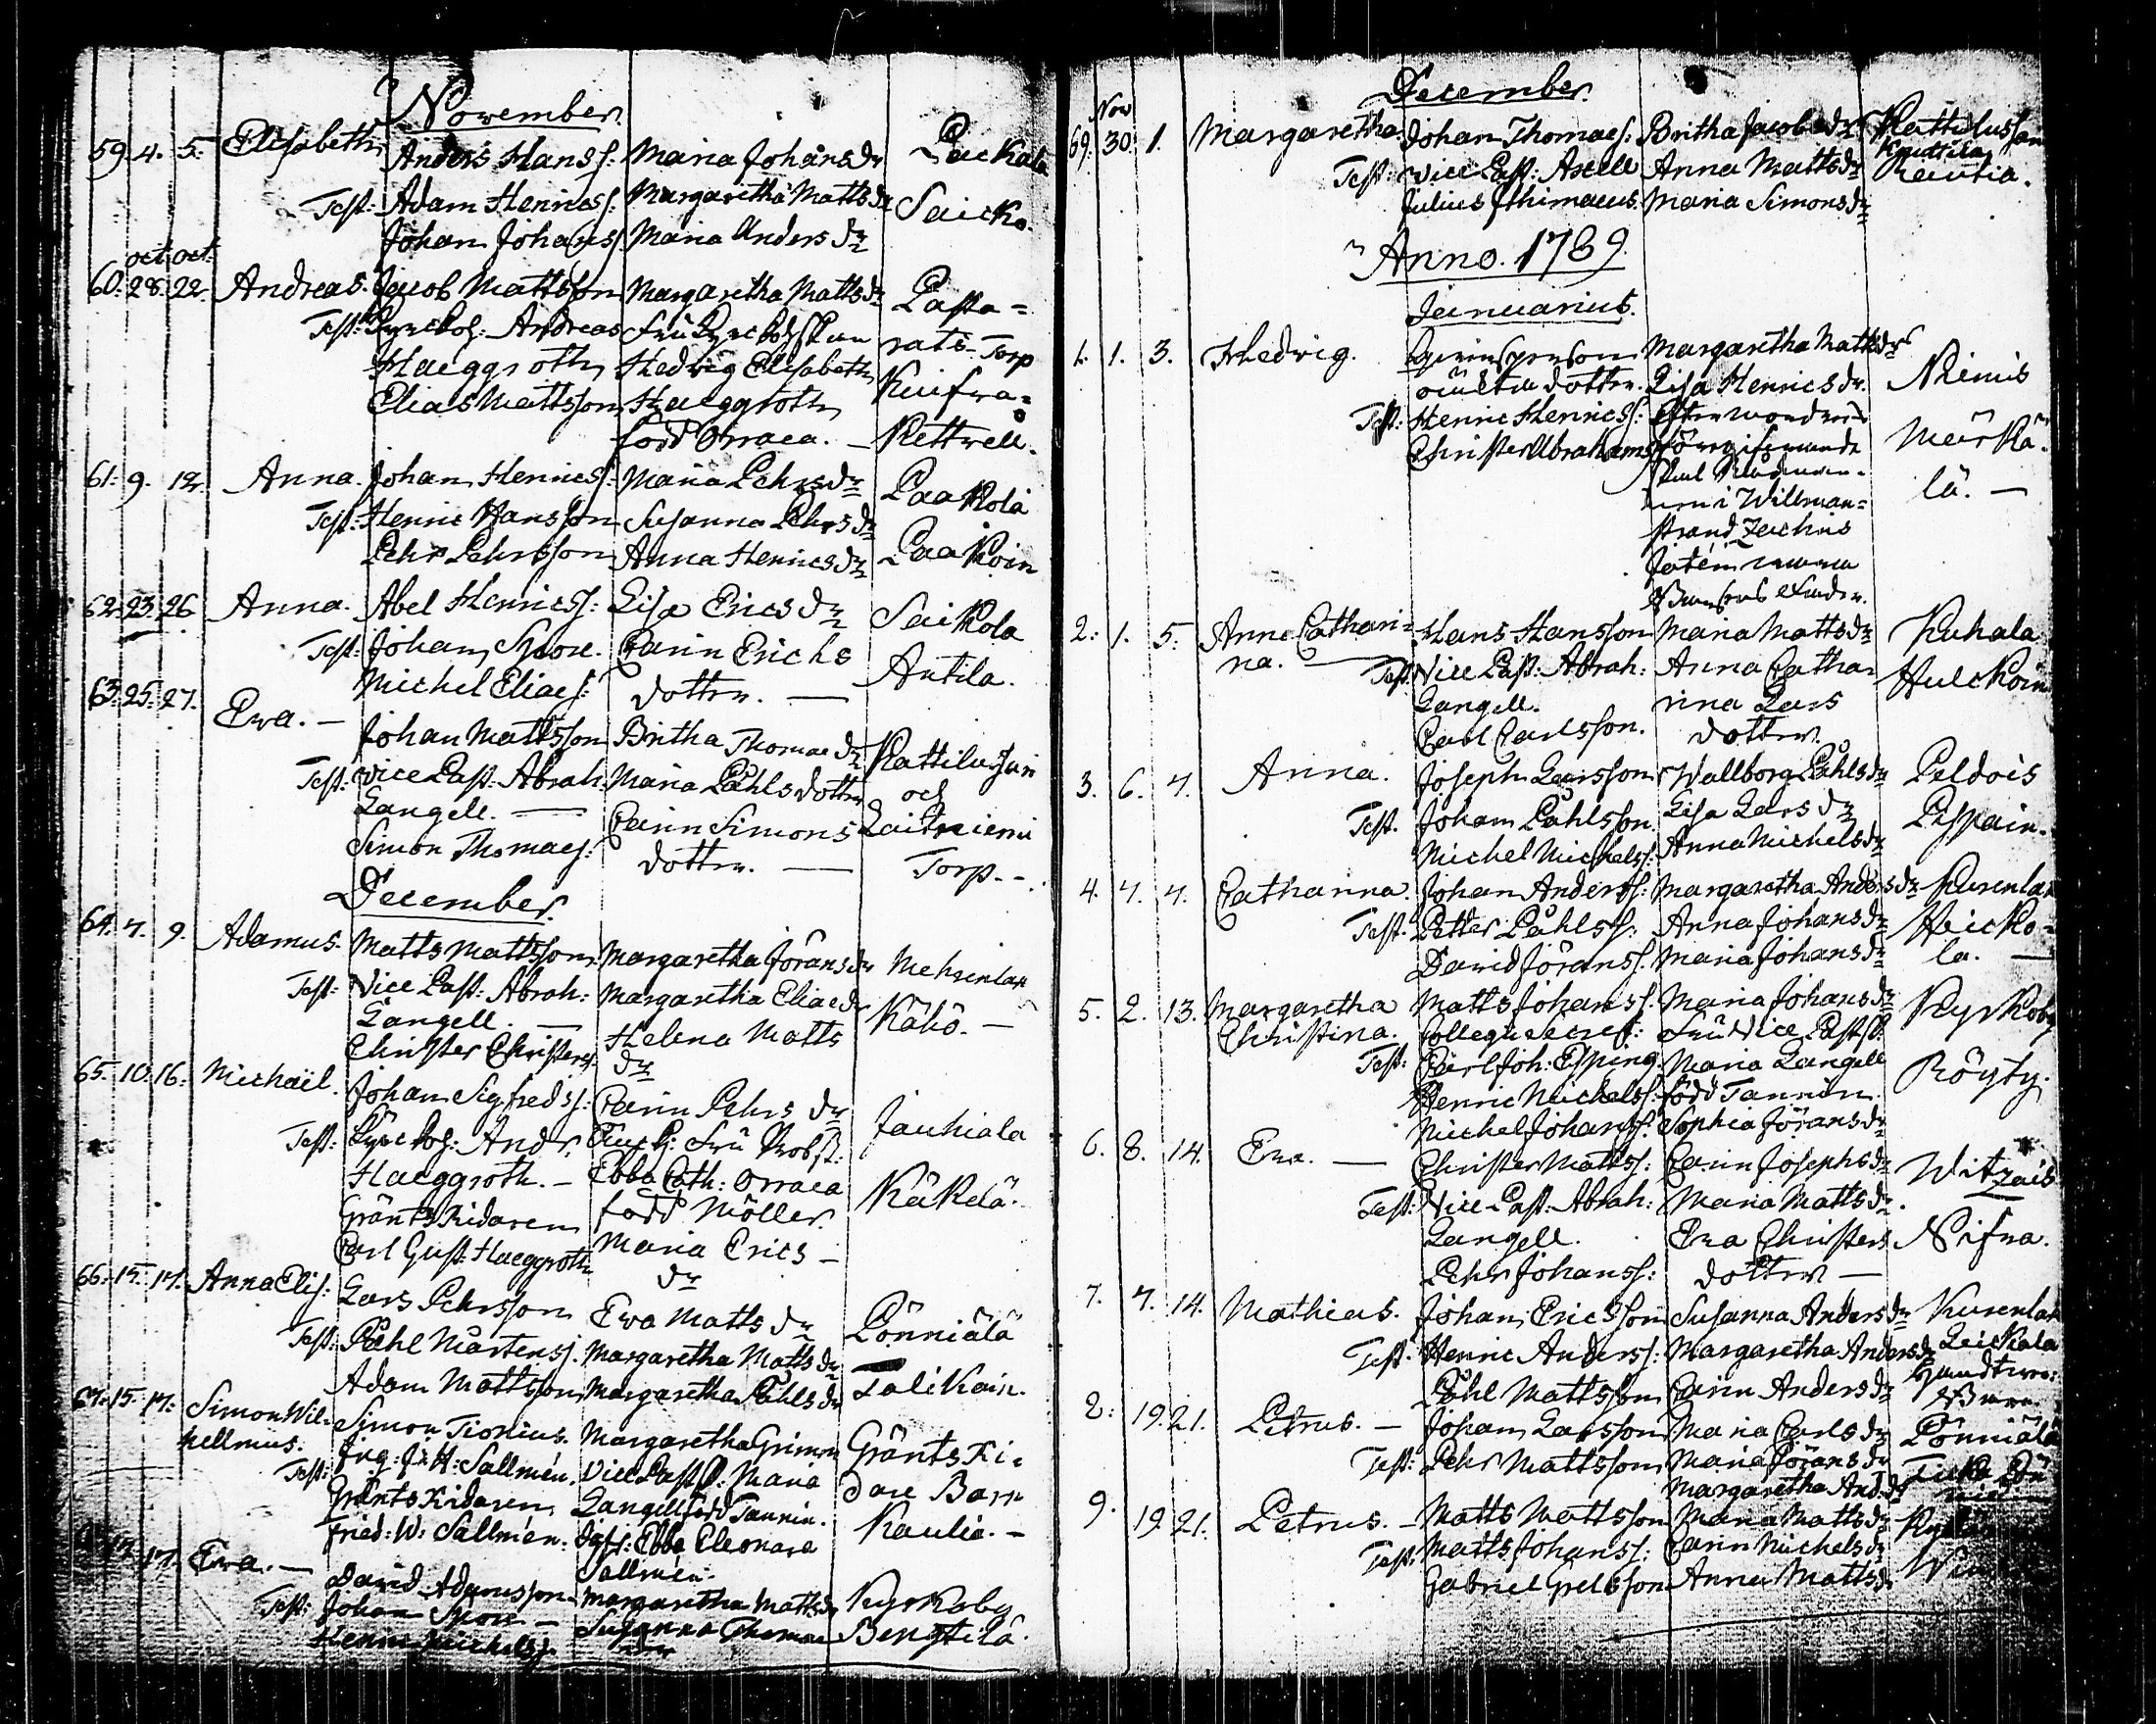 November.
59. 4. 5. Elisabeth Anders Hanss: Maria Johans dr Packala
Test: Adam Henrics: Margaretha Matts dr Saicko.
Johan Johans: Maria Anders dr
oct. oct.
60. 28. 22. Andreas. Jacob Mattsson Margaretha Matts dr Pasta=
Test: Andreas rats Torp
Haeggroth Hedvig Elisabeth Kuifva=
Elias Mattsson Haeggroth
född Orraea. — Kettvell.
61. 9. 12. Anna. Johan Henrics: Maria Pehrs dr Paakola
Test: Henric Hansson Susanna Pehrs dr
Pehr Pehrsson Anna Henrics dr Paakoin
62. 23. 26 Anna. Abel Henrics: Lisa Erics dr Saikola
Test: Johan Spore. Carin Erichs
Michel Elias: dotter. — Antila.
63. 25. 27. Eva. — Johan Mattsson Britha Thomae dr Kattilusjun
Test: Vice Past: Abrah. Maria Påhls dotter och
Langell. — Carin Simons Laitniemi
Simon Thomas: dotter. — Torp. -.
December.
64. 7. 9. Adamus. Matts Mattsson Margaretha Jörans dr Mehrenlax
Test: Vice Past: Abrah: Margaretha Elias dr
Langell. — Helena Matts Kähö. —
Christer Christers: dr
65. 10. 16. Michaël. Johan Sigfreds: Carin Pehrs dr Jauhiala
Test: Andr. Fru Probst:
Haeggroth. — Ebba Cath: Orraea Käkelä.
Gränts Ridaren född Möller.
Carl Gust: Haeggroth Maria Erics —
dr
66. 15. 17. Anna Elis: Lars Pehrsson Eva Matts dr Pönniälä
Test: Påhl Mårtens: Margaretha Matts dr
Adam Mattsson Margaretha Påhls dr Talikain.
67. 15. 17. Simon Wil= Simon Tionius. Margaretha Grimm Gränts Ri=
hellmus. Jng: J: H: Sallmén. Vice Past: Maria dare Barn
Test: Gränts Ridaren Langell född Tannin. Kaulia. —
Fried: W: Sallmén. Jgfr: Ebba Eleonara
Sallmén.
17. 17. Eva. — David Adamsson Margaretha Matts dr Kyrkoby
Test: Johan Spore — Susanna Thomae Bengtilä.
Henric Michels:
December.
Nov
69. 30. 1. Margaretha Johan Thomaes: Britha Jacobs dr Kattilussari
Test: Vice Past: Axell Anna Matts dr Knuttila Rautia.
Julius Thimaeus. Maria Simons dr
Anno. 1789.
Januarius.
1. 1. 3. Hedvig. Margaretha Matts dr
dotter. Lisa Henrics dr. Niemis
Test: Henric Henrics: Mörkä=
Christer Abrahams lä. —
i Willman=
strand
2. 1. 5. Anna Cathari= Hans Hansson Maria Matts dr Kuhala
na. — Test: Vice Past: Abrah: Anna Catha= Hulckoin
Langell. rina Lars
Carl Carlsson. dotter.
3. 6. 7. Anna. Joseph Larsson Wallborg Påhls dr Peldois
Test. Johan Påhlsson. Lisa Lars dr Pispain.
Michel Michels: Anna Michels dr
4. 7. 7. Catharina. Johan Anders: Margaretha Anders dr Kurenlax
Test: Petter Påhls: Anna Johans dr Heicko=
David Jörans: Maria Johans dr la. —
5. 2. 13. Margaretha Matts Johans: Maria Johans dr Kyrkoby
Christina. Collegii Secret: Fru Vice Past:
Test: Carl Joh: Esping. Maria Langell Röyty.
Henric Michels: född Tannin.
Michel Johans: Sophia Jörans dr
6. 8. 14. Eva. — Christer Matts: Carin Josephs dr Witzais
Test: Vice Past: Abrah: Maria Matts dr
Langell. Eva Christers Nifva.
Pehr Johans: dotter —
7. 7. 14. Mathias. Johan Ericsson Susanna Anders dr Kurenlax
Test: Henric Anders: Margaretha Anders dr Leickala
Påhl Mattsson Carin Anders dr
8. 19. 21. Petrus. — Johan Larsson Maria Carls dr Pönniälä
Test: Pehr Mattsson Maria Jörans dr
Margaretha And: dr
9. 19. 21. Petrus. — Matts Mattsson Maria Matts dr
Test: Matts Johans: Carin Michels dr
Gabriel Grelsson Anna Matts dr